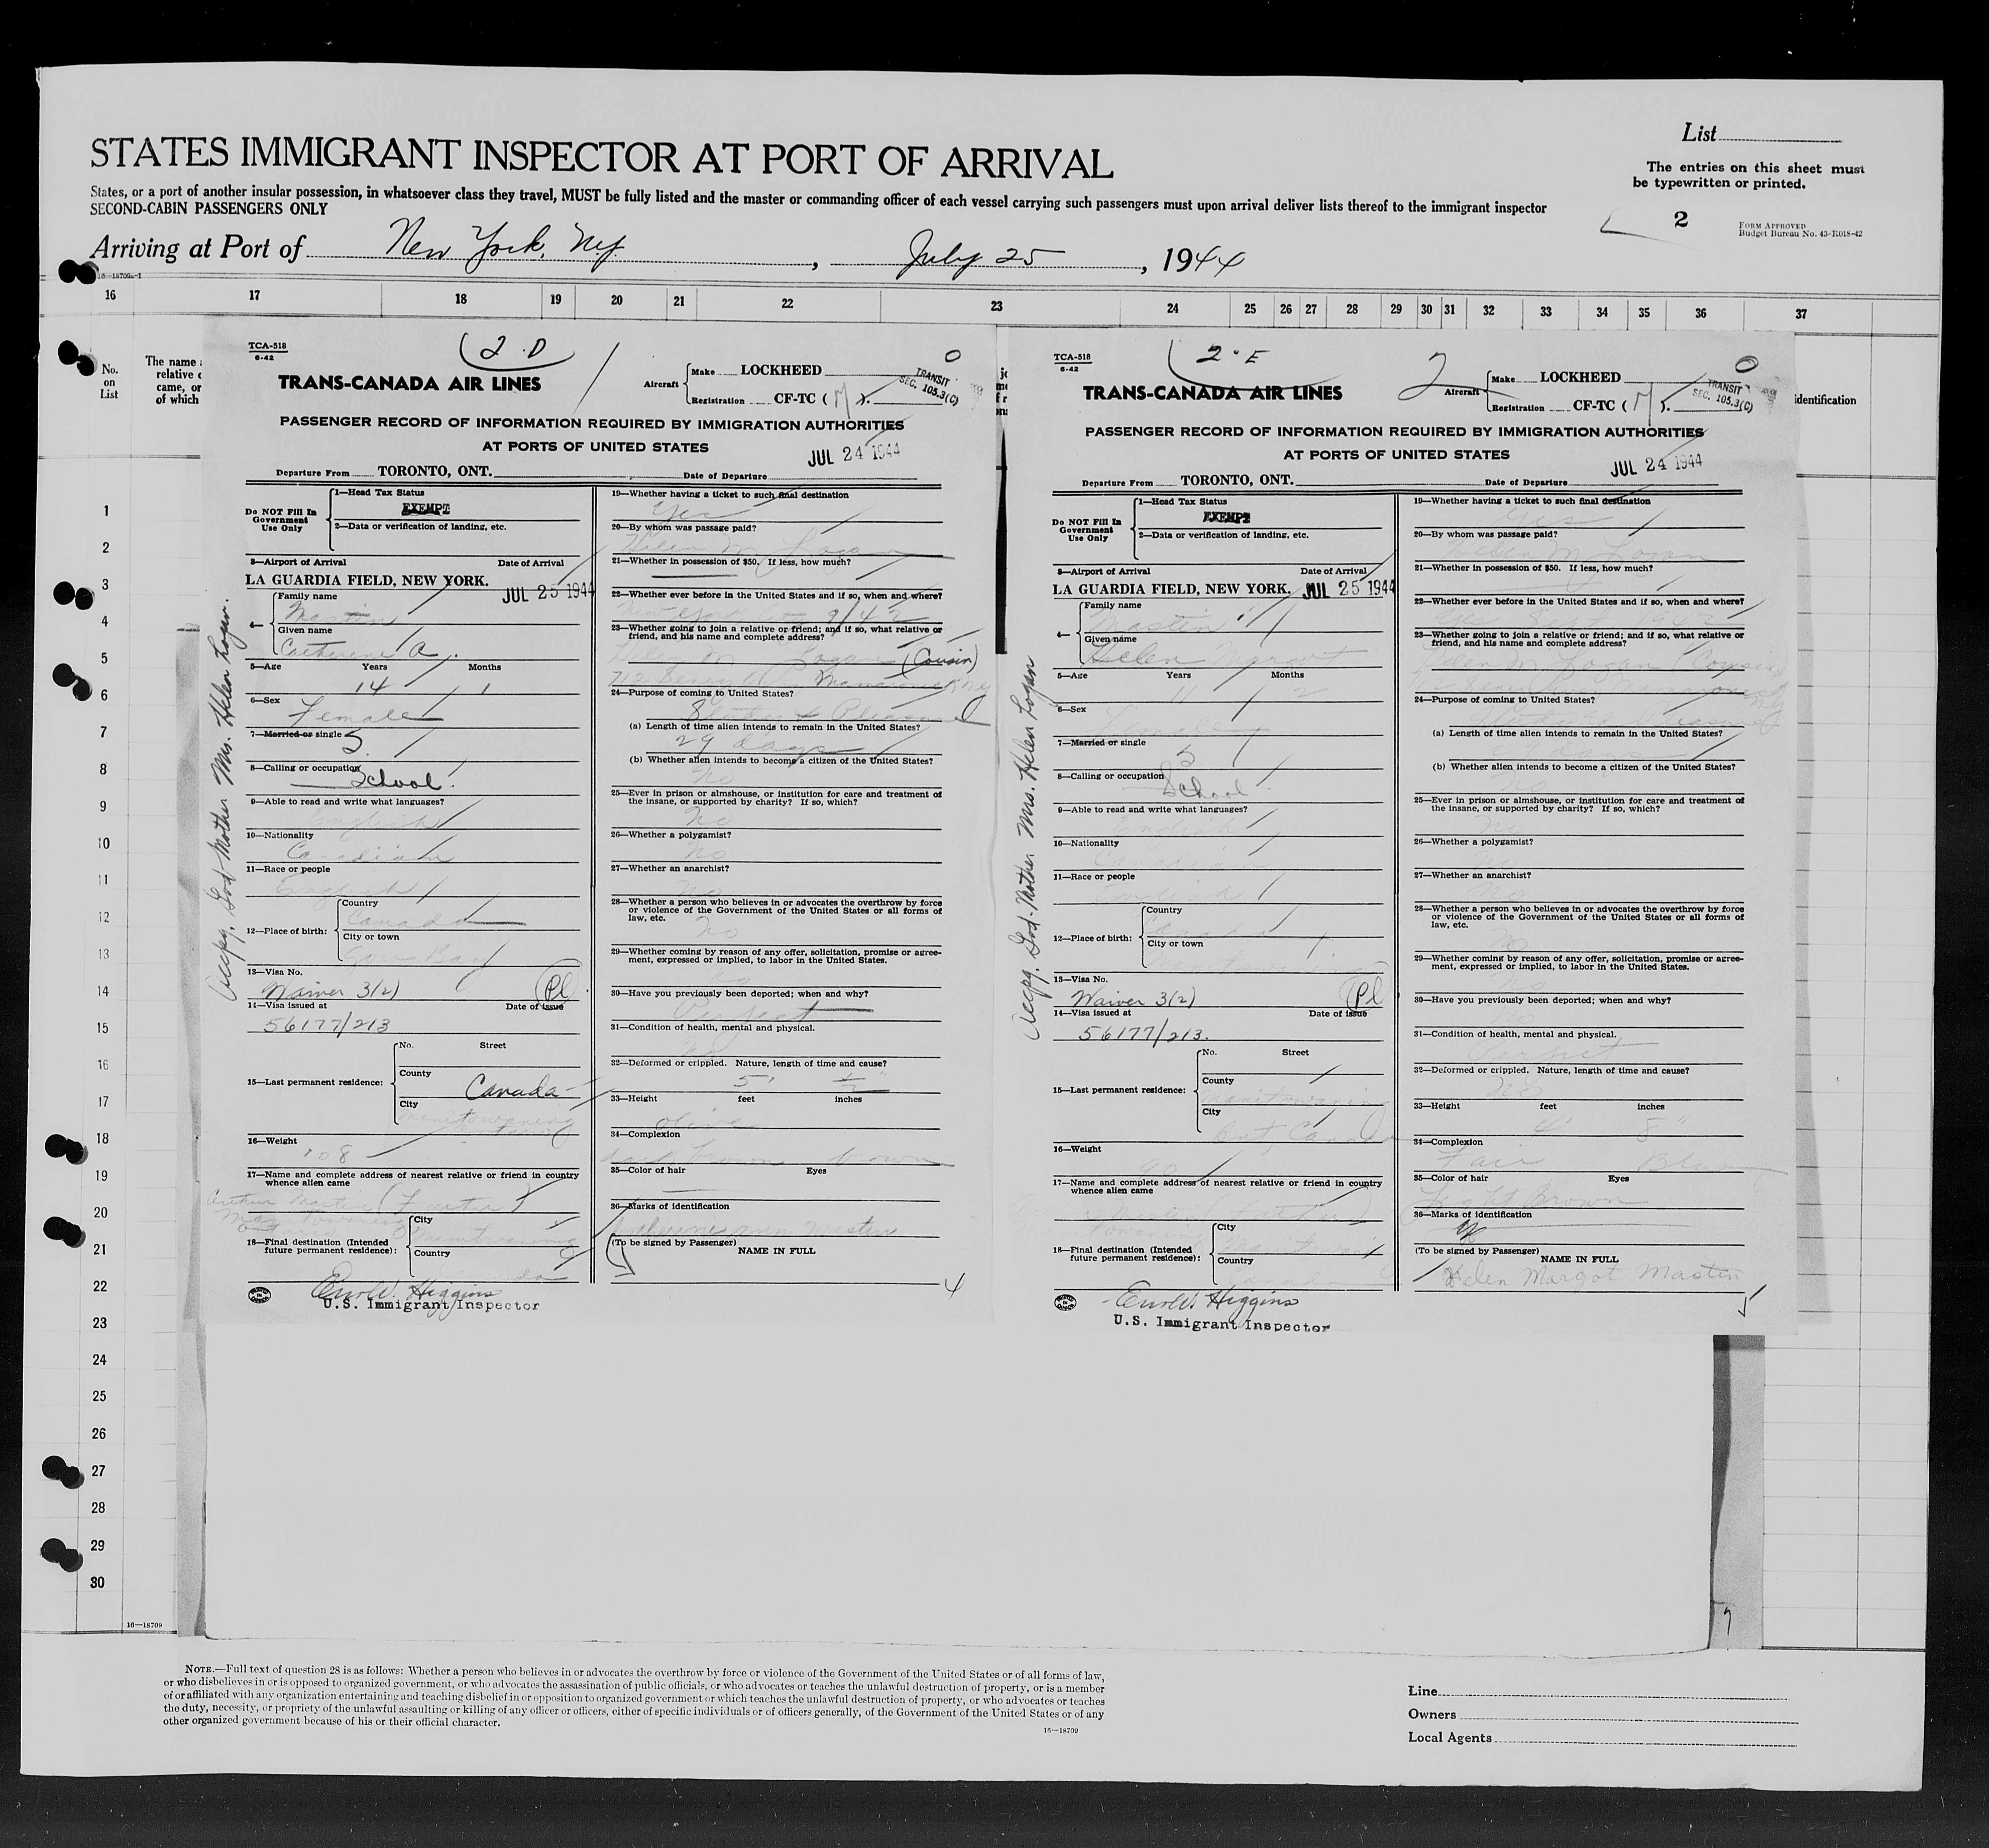 List
STATES IMMIGRANT INSPECTOR AT PORT OF ARRIVAL
The entries on this sheet must
be typewritten or printed.
States, or a port of another insular possession, in whatsoever class they travel, MUST be fully listed and the master or commanding officer of each vessel carrying such passengers must upon arrival deliver lists thereof to the immigrant inspector
SECOND-CABIN PASSENGERS ONLY
2
FORM APPROVED
Budget Bureau No. 43-R018-42
Arriving at Port of New York, N.Y. , July 25 , 1944
16 17 18 19 20 21 22 23 24 25 26 27 28 29 30 31 32 33 34 35 36 37
No.
on
List
The name
relative
came, or
of which
identification
1
2
3
4
5
6
7
8
9
10
11
12
13
14
15
16
17
18
19
20
21
22
23
24
25
26
27
28
29
30
16—18709
Accpg. God Mother Mrs. Helen Logan.
TCA-518
6-42
2·D
0
TRANS-CANADA AIR LINES
Aircraft
Make LOCKHEED
Registration CF-TC ( M ).
TRANSIT
SEC. 105.3(C)
PASSENGER RECORD OF INFORMATION REQUIRED BY IMMIGRATION AUTHORITIES
AT PORTS OF UNITED STATES
JUL 24 1944
Departure From TORONTO, ONT. Date of Departure
Do NOT Fill In
Government
Use Only
1—Head Tax Status
EXEMPT
2—Data or verification of landing, etc.
3—Airport of Arrival Date of Arrival
LA GUARDIA FIELD, NEW YORK. JUL 25 1944
4—
Family name
Mastin
Given name
Catherine A.
5—Age Years Months
14 1
6—Sex
Female
7—Married or single S
8—Calling or occupation
School
9—Able to read and write what languages?
English
10—Nationality
Canadian
11—Race or people
English
12—Place of birth:
Country
Canada
City or town
Gore Bay
13—Visa No.
Waiver 3(2) Pl
14—Visa issued at Date of issue
56177/213
15—Last permanent residence:
No. Street
County
Canada
City
Manitowaning
16—Weight
108
17—Name and complete address of nearest relative or friend in country
whence alien came
18—Final destination (Intended
future permanent residence):
City
Country
Higgins
U.S. Immigrant Inspector
19—Whether having a ticket to such final destination
Yes
20—By whom was passage paid?
Helen M. Logan
21—Whether in possession of $50. If less, how much?
22—Whether ever before in the United States and if so, when and where?
New York 9/42
23—Whether going to join a relative or friend; and if so, what relative or
friend, and his name and complete address?
Helen M Logan (Cousin)
24—Purpose of coming to United States?
(a) Length of time alien intends to remain in the United States?
29 days
(b) Whether alien intends to become a citizen of the United States?
No
25—Ever in prison or almshouse, or institution for care and treatment of
the insane, or supported by charity? If so, which?
No
26—Whether a polygamist?
No
27—Whether an anarchist?
No
28—Whether a person who believes in or advocates the overthrow by force
or violence of the Government of the United States or all forms of
law, etc.
No
29—Whether coming by reason of any offer, solicitation, promise or agree-
ment, expressed or implied, to labor in the United States.
30—Have you previously been deported; when and why?
Perfect
31—Condition of health, mental and physical.
No
32—Deformed or crippled. Nature, length of time and cause?
5'
33—Height feet inches
Olive
34—Complexion
dark brown brown
35—Color of hair Eyes
36—Marks of identification
Catherine Ann Mastin
(To be signed by Passenger)
NAME IN FULL
4
Accpg. God-Mother Mrs. Helen Logan
TCA-518
6-42
2·E
2
0
TRANS-CANADA AIR LINES
Aircraft
Make LOCKHEED
Registration CF-TC ( M ).
TRANSIT
SEC. 105.3(C)
PASSENGER RECORD OF INFORMATION REQUIRED BY IMMIGRATION AUTHORITIES
AT PORTS OF UNITED STATES
JUL 24 1944
Departure From TORONTO, ONT. Date of Departure
Do NOT Fill In
Government
Use Only
1—Head Tax Status
EXEMPT
2—Data or verification of landing, etc.
3—Airport of Arrival Date of Arrival
LA GUARDIA FIELD, NEW YORK. JUL 25 1944
4—
Family name
Mastin
Given name
Helen Margot
5—Age Years Months
11 2
6—Sex
Female
7—Married or single
S
8—Calling or occupation
School
9—Able to read and write what languages?
English
10—Nationality
Canadian
11—Race or people
English
12—Place of birth:
Country
Canada
City or town
13—Visa No.
Waiver 3(2) Pl
14—Visa issued at Date of issue
56177/213.
15—Last permanent residence:
No. Street
County
Manitowaning
City
Ont. Canada
16—Weight
90
17—Name and complete address of nearest relative or friend in country
whence alien came
18—Final destination (Intended
future permanent residence):
City
Country
Canada
Higgins
U.S. Immigrant Inspector
19—Whether having a ticket to such final destination
Yes
20—By whom was passage paid?
Helen M Logan
21—Whether in possession of $50. If less, how much?
22—Whether ever before in the United States and if so, when and where?
23—Whether going to join a relative or friend; and if so, what relative or
friend, and his name and complete address?
Helen M. Logan (Cousin)
24—Purpose of coming to United States?
(a) Length of time alien intends to remain in the United States?
(b) Whether alien intends to become a citizen of the United States?
No
25—Ever in prison or almshouse, or institution for care and treatment of
the insane, or supported by charity? If so, which?
No
26—Whether a polygamist?
No
27—Whether an anarchist?
No
28—Whether a person who believes in or advocates the overthrow by force
or violence of the Government of the United States or all forms of
law, etc.
No
29—Whether coming by reason of any offer, solicitation, promise or agree-
ment, expressed or implied, to labor in the United States.
30—Have you previously been deported; when and why?
No
31—Condition of health, mental and physical.
Perfect
32—Deformed or crippled. Nature, length of time and cause?
No
33—Height feet inches
4' 8"
34—Complexion
Fair Blue
35—Color of hair Eyes
Light Brown
36—Marks of identification
(To be signed by Passenger)
NAME IN FULL
Helen Margot Mastin
5
NOTE.—Full text of question 28 is as follows: Whether a person who believes in or advocates the overthrow by force or violence of the Government of the United States or of all forms of law,
or who disbelieves in or is opposed to organized government, or who advocates the assassination of public officials, or who advocates or teaches the unlawful destruction of property, or is a member
of or affiliated with any organization entertaining and teaching disbelief in or opposition to organized government or which teaches the unlawful destruction of property, or who advocates or teaches
the duty, necessity, or propriety of the unlawful assaulting or killing of any officer or officers, either of specific individuals or of officers generally, of the Government of the United States or of any
other organized government because of his or their official character.
16—18709
Line
Owners
Local Agents